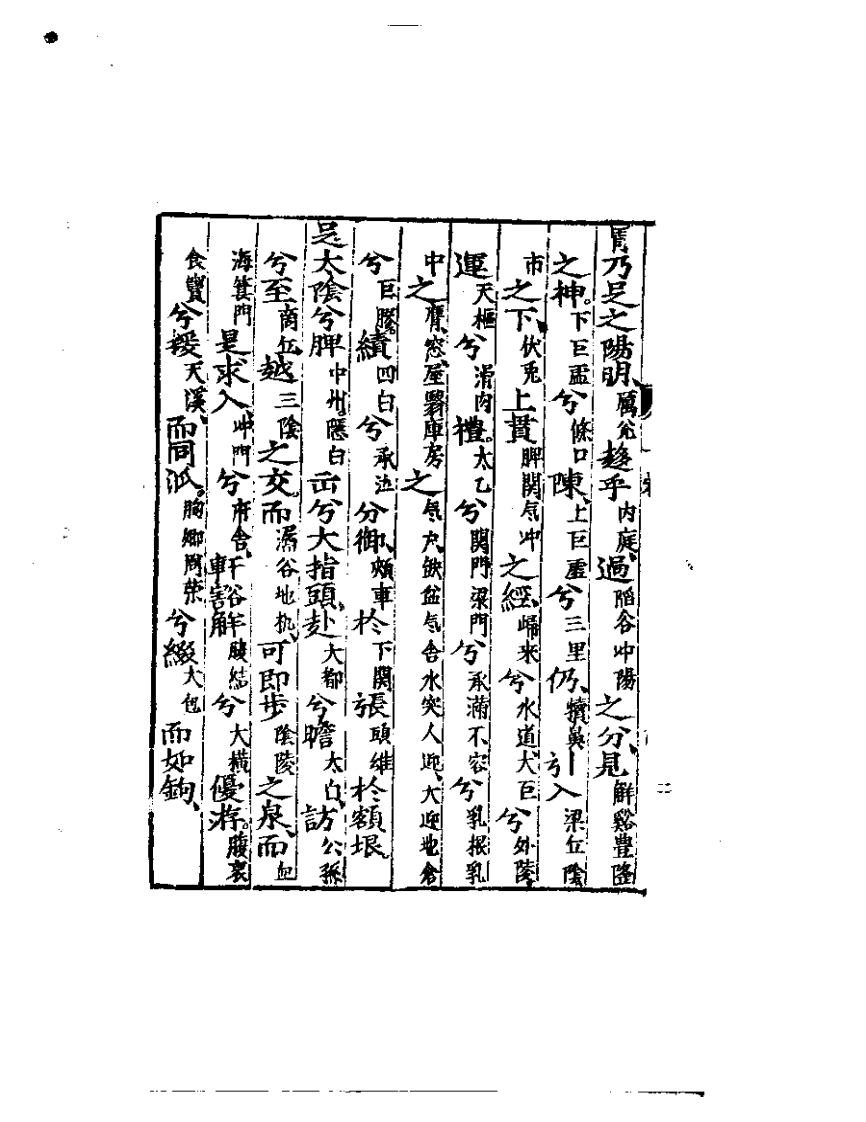 胃乃足之陽明、厲兊趍乎内庭、過陷谷冲陽之分、見解谿豊隆
之神。下巨虛兮條口陳、上巨虛兮三里仍、犢鼻引入梁丘陰
市之下、伏兎上貫髀関气冲之經、歸來兮水道大巨兮外陵
運天樞兮滑肉禮。太乙兮関門梁門兮承滿不容兮乳根乳
中之膺窓屋翳庫房之气户、缺盆气舍水突人迎、大迎地倉
兮巨膠。續四白兮承泣分御、頰車於下関張頭維於額垠。
足太陰兮脾中州。隠白出兮大指頭、赴大都兮瞻太白、訪公孫
兮至商丘、越三陰之交而漏谷地机、可即步陰陵之泉、而血
海箕門是求入冲門兮府舍。軒豁解腹結兮大横優游。腹哀
食竇兮接天溪、而同泒。胸鄉周榮兮綴大包而如鉤、